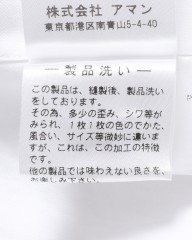 株式会社 アマン
東京都港区南青山5-4-40
—製品洗い—
この製品は、縫製後、製品洗い
をしております。
その為、多少の歪み、シワ等が
みられ、1枚1枚の色のでかた、
風合い、サイズ等微妙に違いま
すが、これは、この加工の特徴
です。
他の製品では味わえない良さを、
お楽しみ下さい。